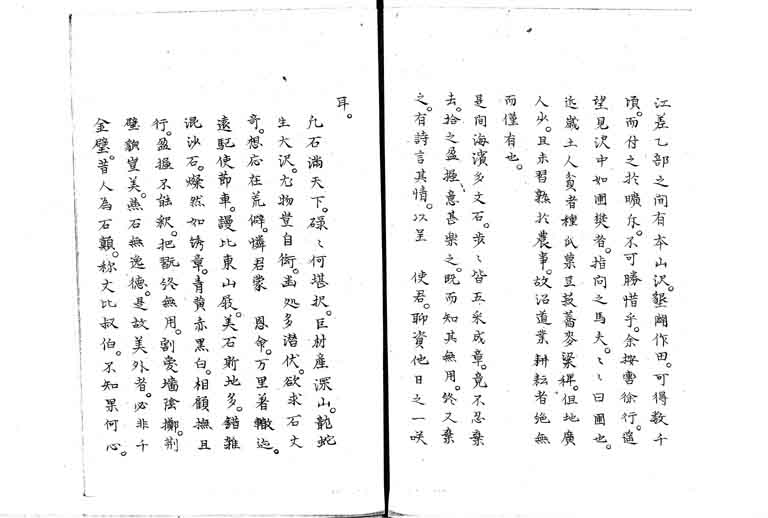 江差乙部之間有本山沢。墾闢作田。可得数千
頃。而付之於曠斥。不可勝惜乎。余按轡徐行。遥
望見沢中如圃樊者。指問之馬夫。〻〻曰圃也。
近歳土人貧者種瓜菓豆菽蕎麦梁稗。但地廣
人少。且未習熟於農事。故沿道業耕耘者絶無
而僅有也。
是間海濱多文石。歩〻皆五采成章。竟不忍棄
去。拾之盈握。意甚楽之。既而知其無用。終又棄
之。有詩言其情。以呈 使君。聊資他日之一咲
耳。
凡石満天下。碌〻何堪択。巨材産深山。龍蛇
生大沢。尤物豈自衒。幽処多潜伏。欲求石丈
奇。想応在荒僻。憐君蒙 恩命。万里著轍迹。
遠記使節車。謾比東山屐。美石斯地多。錯雑
混沙石。燦然如锈章。青黄赤黒白。相顧撫且
行。盈握不能釈。把翫終無用。割愛墻陰擲。荊
璧貌豈美。燕石無逸徳。是故美外者。必非千
金璧。昔人為石顛。称丈比叔伯。不知果何心。